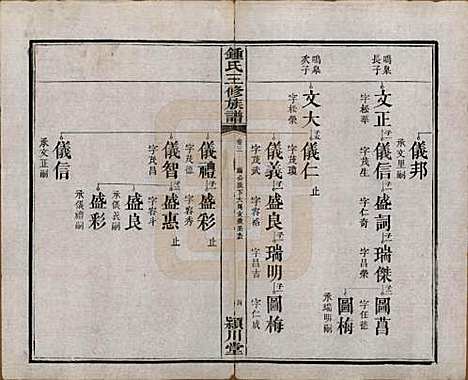 鳴皋長子
文正
字松華
儀信
字茂生
盛詞
字仁奇
瑞傑
字昌榮
圖菖
字任德
圖梅
承瑞明嗣
儀邦
承文里嗣
鳴皋次子
文大
字松榮
儀仁
字茂瓊
止
儀義
字茂武
盛良
字容裕
瑞明
字昌吉
圖梅
字仁威
鍾氏三修族譜
卷三
潁川堂
儀禮
字茂德
盛彩
止
儀智
字茂昌
盛惠
字容斗
止
盛良
承儀義嗣
盛彩
承儀禮嗣
儀信
承文正嗣